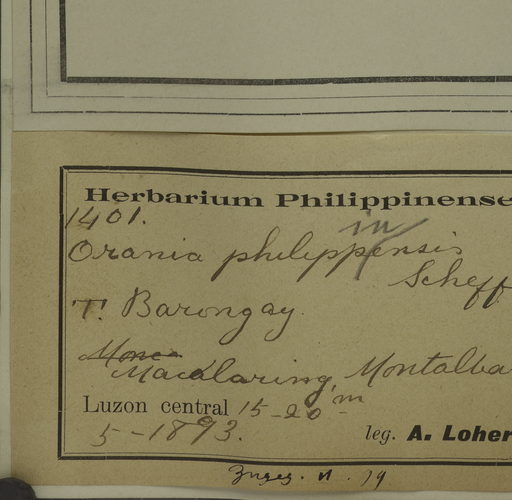 Herbarium Philippinense
1401.
in
Orania philippensis
Scheff
T. Barongay
Macalaring, Montalba
Luzon central 15-20 m
5-1893. leg. A. Loher